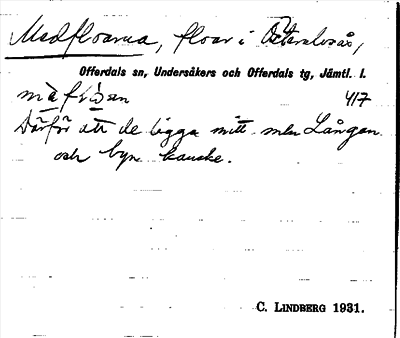 Medfloarna, floar i Östervåsås,
Offerdals sn, Undersåkers och Offerdals tg, Jämtl. l.
417
Därför att de ligga mitt mln Långan
och byn kanske.
C. LINDBERG 1931.